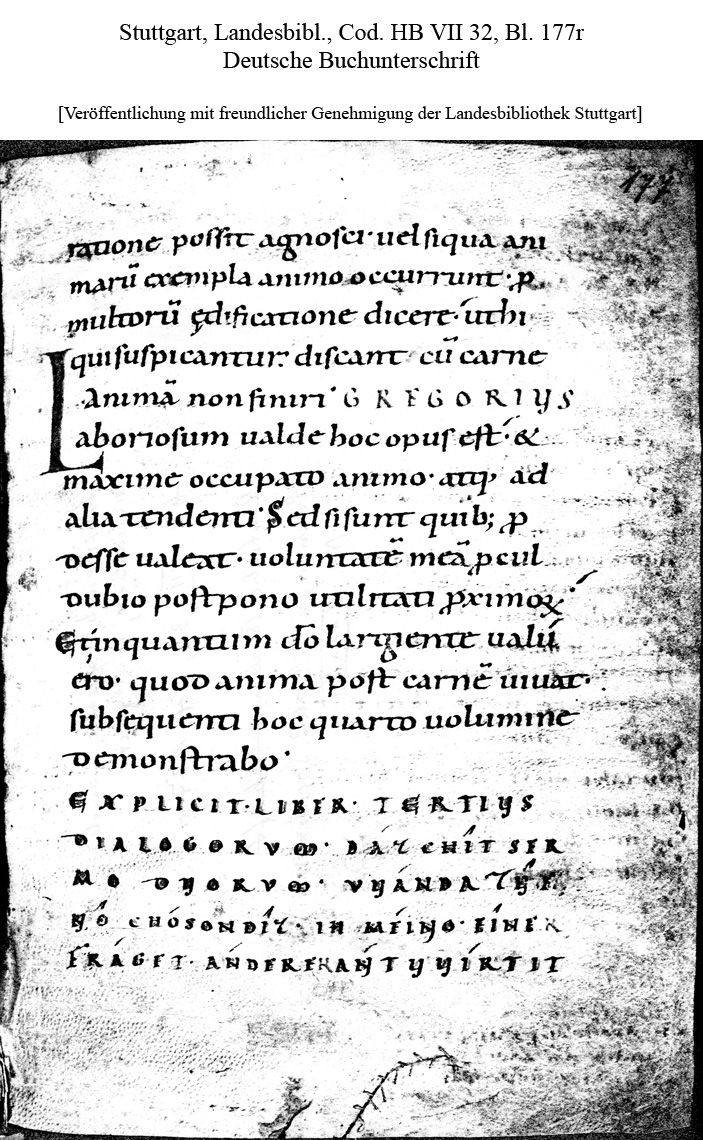 Stuttgart, Landesbibl., Cod. HB VII 32, Bl. 177r
Deutsche Buchunterschrift
[Veröffentlichung mit freundlicher Genehmigung der Landesbibliothek Stuttgart]
177
ratione possit agnosci· uel siqua ani
marū exempla animo occurrunt· ꝑ
multorū ędificatione dicere· út hi
qui suspicantur· discant cū carne
Animā non finiri· GREGORIUS
Laboriosum ualde hoc opus est· &
maxime occupato animo· atq· ad
alia tendenti· Sed si sunt quib; ꝓ
desse ualeat· uoluntatē meā ꝓcul
dubio postpono utilitati ꝓximoꝝ
Et in quantum dō largiente ualú
ero· quod anima post carnē uiuat·
subsequenti hoc quarto uolumine
demonstrabo·
EXPLICIT· LIBER· TERTIUS
DIALOGORVM· DÁZ CHÍT SER
MO DUORVM· VUÁNDA ZUÉ
NÔ CHÓSONDÍZ· IN MÉINUO· ÉINER
FRÁGET· ÁNDERER ÁNTUUÍRTIT